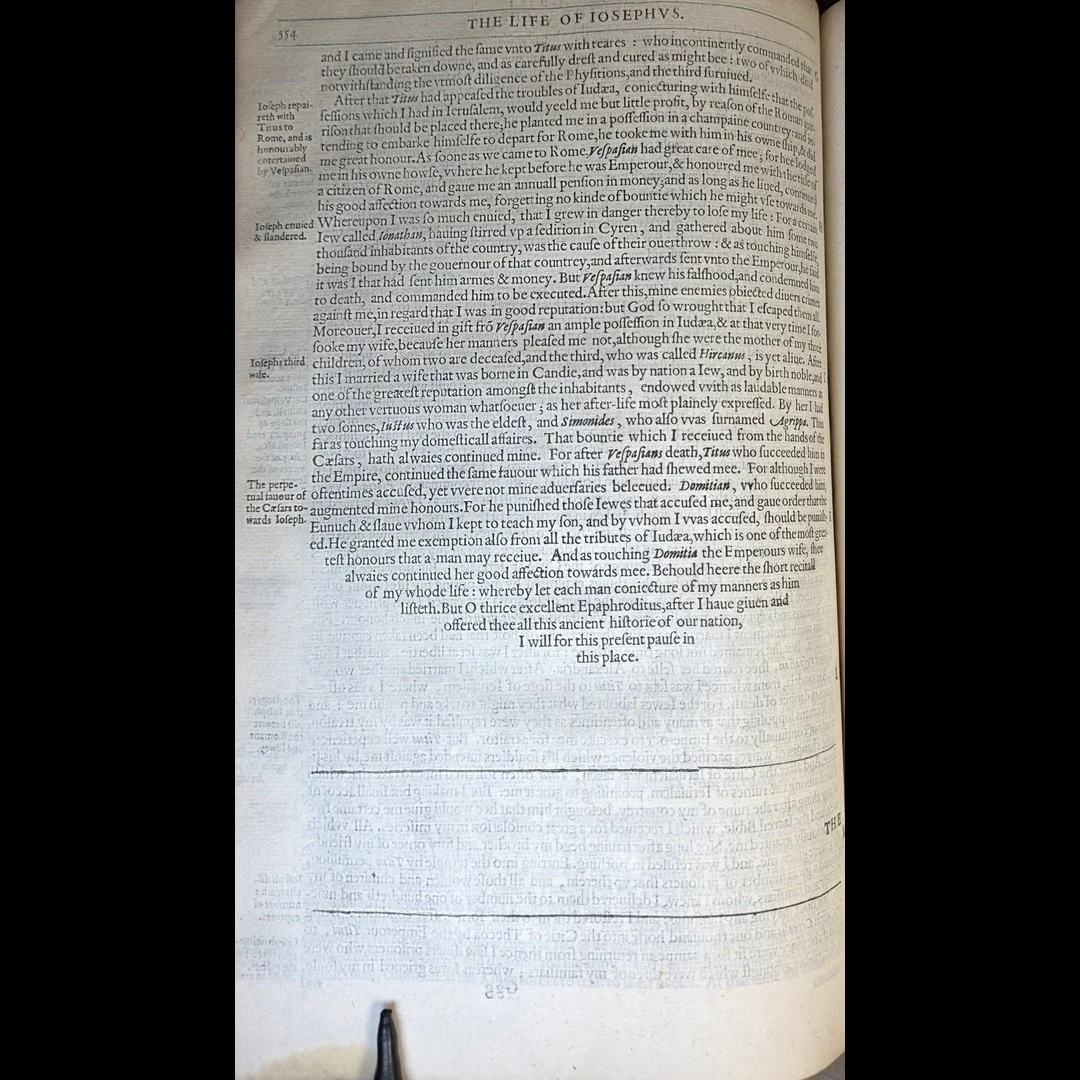 554
THE LIFE OF IOSEPHVS.
and I came and ſignified the ſame vnto Titus with teares : who incontinently commanded that
they ſhould be taken downe, and as carefully dreſt and cured as might bee : two of which died
notwithſtanding the vtmoſt diligence of the Phyſitions, and the third ſuruiued.
After that Titus had appeaſed the troubles of Iudæa, coniecturing with himſelfe that the poſ-
ſeſſions which I had in Ieruſalem, would yeeld me but little profit, by reaſon of the Roman gar-
riſon that ſhould be placed there; he planted me in a poſſeſſion in a champaine countrey: and in-
tending to embarke himſelfe to depart for Rome, he tooke me with him in his owne ſhip, & did
me great honour. As ſoone as we came to Rome, Veſpaſian had great care of mee, for hee lodged
me in his owne howſe, vvhere he kept before he was Emperour, & honoured me with the title of
a citizen of Rome, and gaue me an annuall penſion in money; and as long as he liued, continued
his good affection towards me, forgetting no kinde of bountie which he might vſe towards me.
Whereupon I was ſo much enuied, that I grew in danger thereby to loſe my life : For a certain
Iew called Ionathan, hauing ſtirred vp a ſedition in Cyren, and gathered about him ſome two
thouſand inhabitants of the country, was the cauſe of their ouerthrow : & as touching himſelfe,
being bound by the gouernour of that countrey, and afterwards ſent vnto the Emperour, he ſaid
it was I that had ſent him armes & money. But Veſpaſian knew his falſhood, and condemned him
to death, and commanded him to be executed. After this, mine enemies obiected diuers crimes
againſt me, in regard that I was in good reputation: but God ſo wrought that I eſcaped them all.
Moreouer, I receiued in gift frō Veſpaſian an ample poſſeſſion in Iudæa, & at that very time I for-
ſooke my wife, becauſe her manners pleaſed me not, although ſhe were the mother of my three
children, of whom two are deceaſed, and the third, who was called Hircanus, is yet aliue. After
this I married a wife that was borne in Candie, and was by nation a Iew, and by birth noble, and
one of the greateſt reputation amongſt the inhabitants, endowed vvith as laudable manners as
any other vertuous woman whatſoeuer ; as her after-life moſt plainely expreſſed. By her I had
two ſonnes, Iuſtus who was the eldeſt, and Simonides, who alſo vvas ſurnamed Agrippa. Thus
far as touching my domeſticall affaires. That bountie which I receiued from the hands of the
Cæſars, hath alwaies continued mine. For after Veſpaſians death, Titus who ſucceeded him in
the Empire, continued the ſame fauour which his father had ſhewed mee. For although I were
oftentimes accuſed, yet vvere not mine aduerſaries beleeued. Domitian, vvho ſucceeded him,
augmented mine honours. For he puniſhed thoſe Iewes that accuſed me, and gaue order that the
Eunuch & ſlaue vvhom I kept to teach my ſon, and by vvhom I vvas accuſed, ſhould be puniſh-
ed. He granted me exemption alſo from all the tributes of Iudæa, which is one of the moſt grea-
teſt honours that a man may receiue. And as touching Domitia the Emperours wife, ſhee
alwaies continued her good affection towards mee. Behould heere the ſhort recitall
of my whode life : whereby let each man coniecture of my manners as him
liſteth. But O thrice excellent Epaphroditus, after I haue giuen and
offered thee all this ancient hiſtorie of our nation,
I will for this preſent pauſe in
this place.
Ioſeph repai-
reth with
Titus to
Rome, and is
honourably
entertained
by Veſpaſian.
Ioſeph enuied
& ſlandered.
Ioſephs third
wife.
The perpe-
tual fauour of
the Cæſars to-
wards Ioſeph.
THE